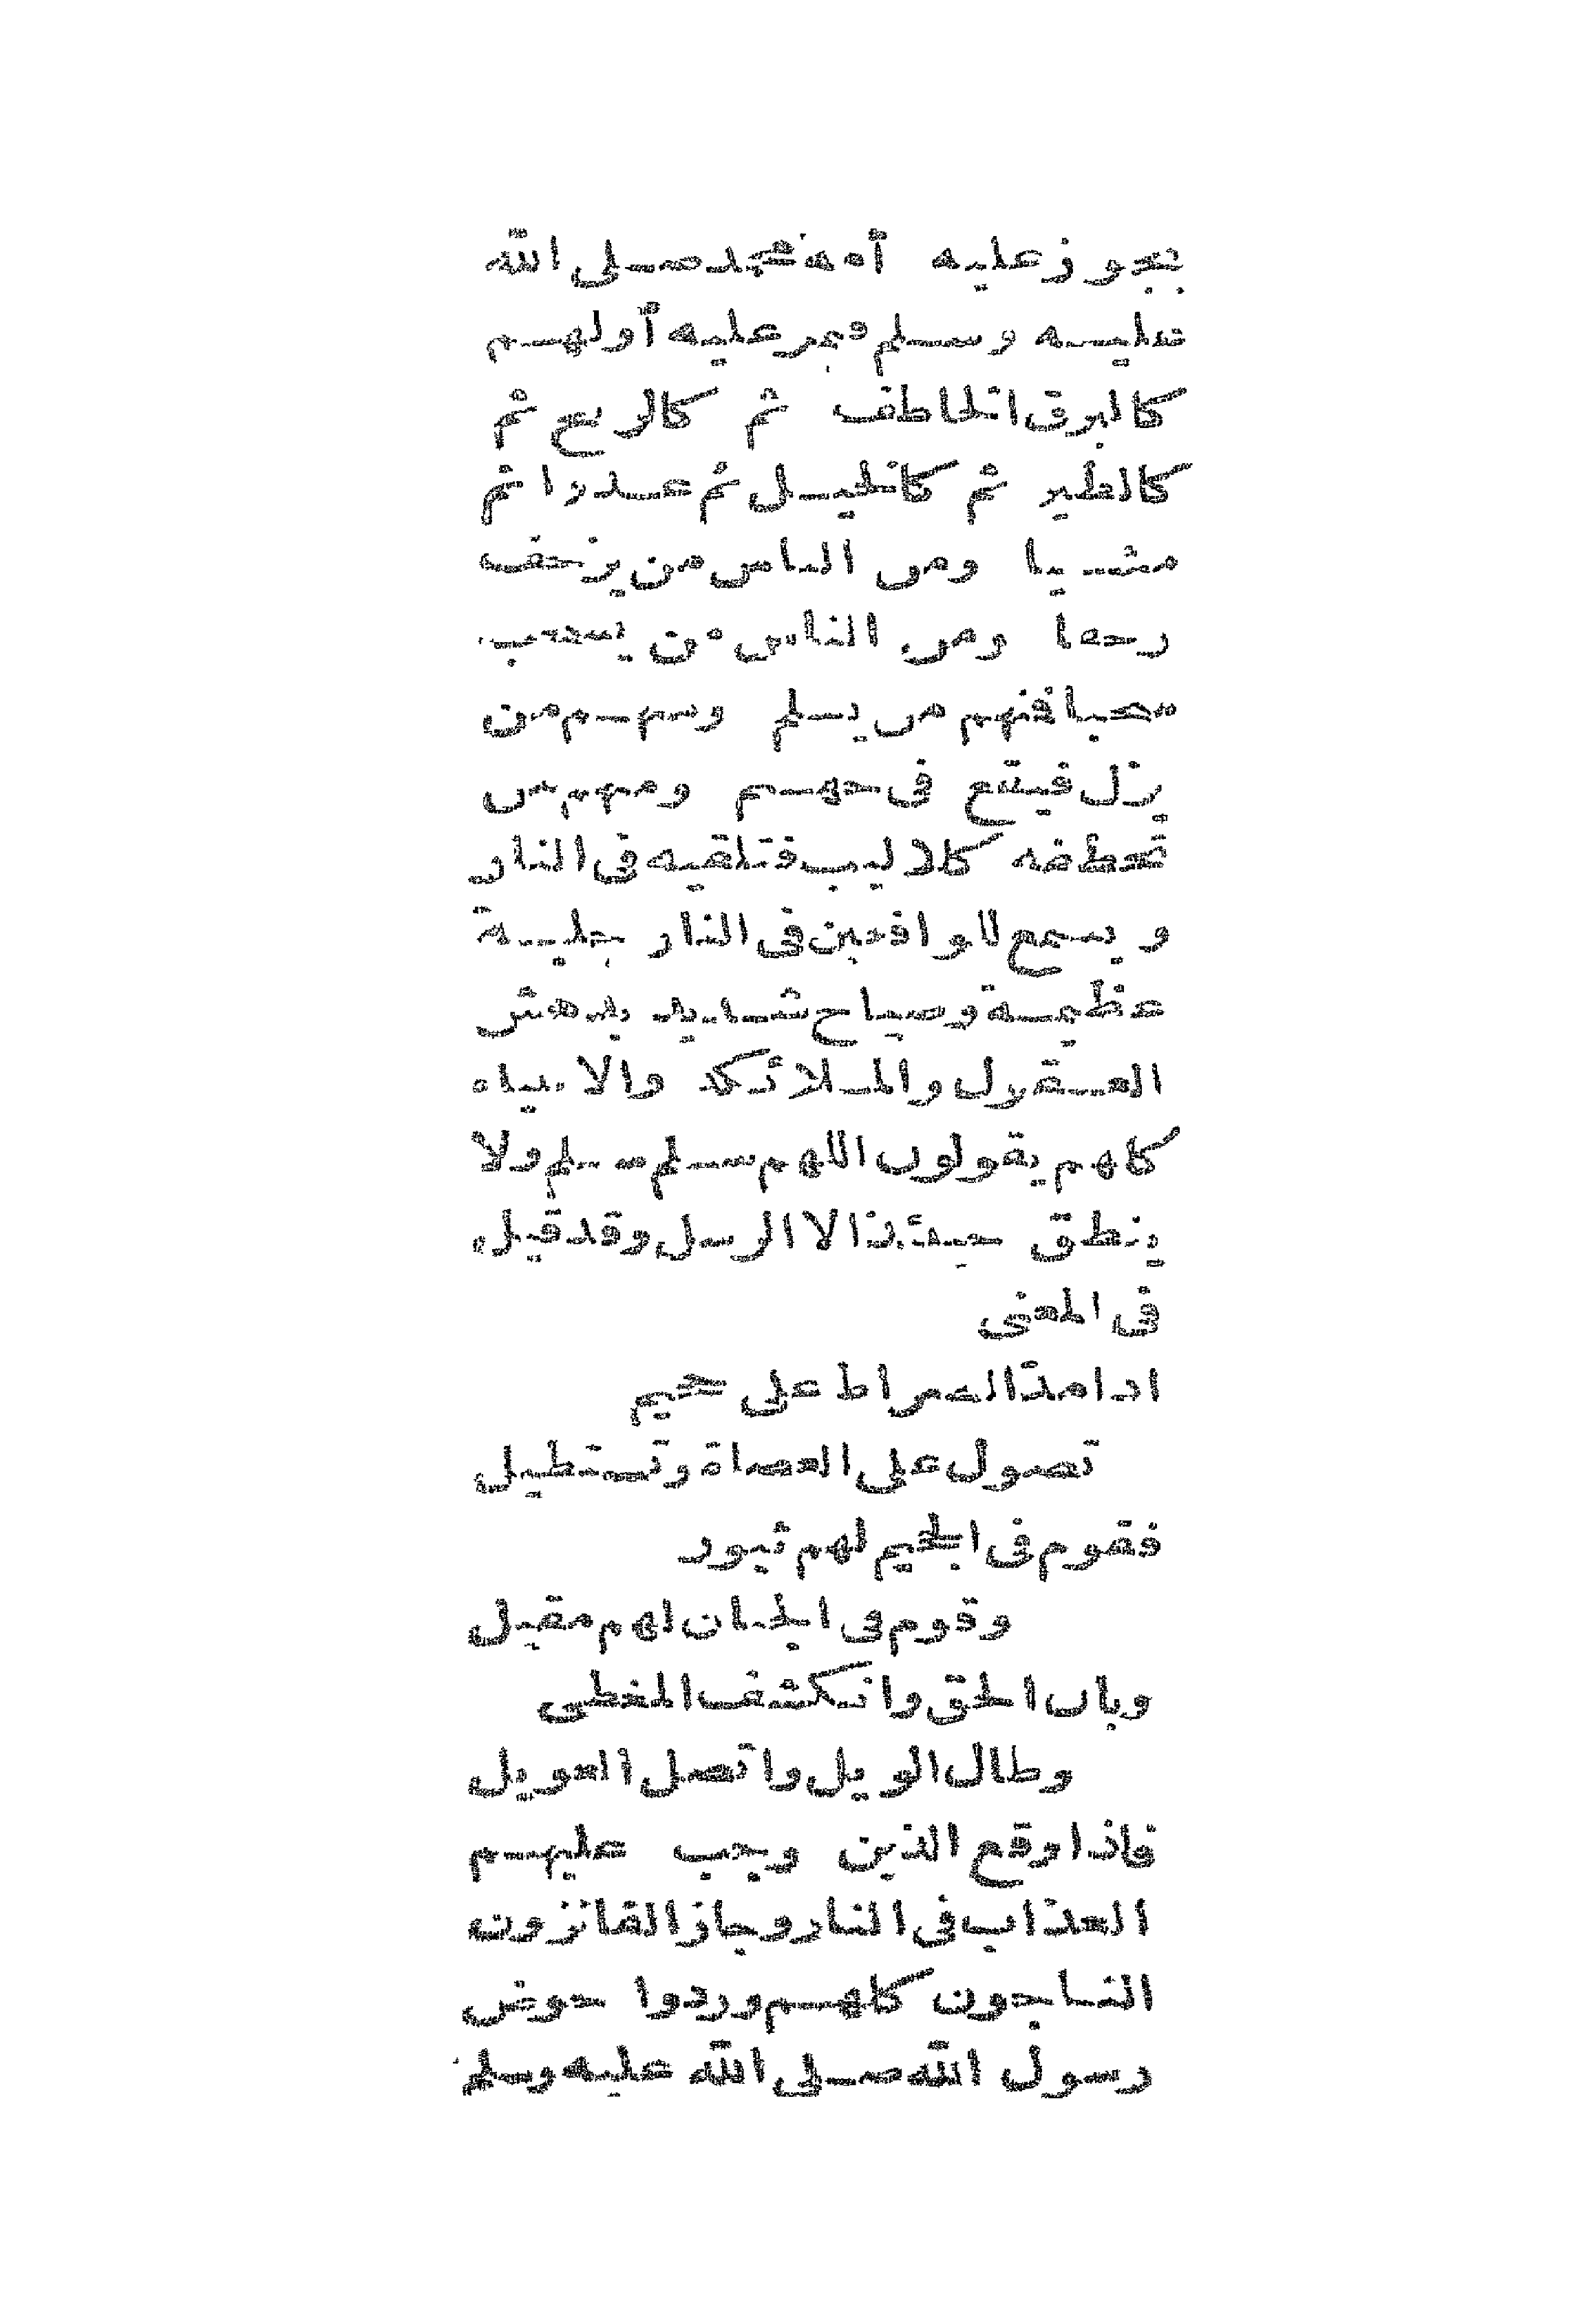 يجوز عليه أمة محمد صلى الله
عليه وسلم فيمر عليه أولهم
كالبرق الخاطف ثم كالريح ثم
كالطير ثم كالخيل ثم عدوا ثم
مشيا ومن الناس من يزحف
زحفا ومن الناس من يسحب
سحبا فمنهم من يسلم ومنهم من
يزل فيقع في جهنم ومنهم من
تخطفه كلاليب فتلقيه في النار
ويسمع للواقعين في النار جلبة
عظيمة وصياح شديد يدهش
العقول والملائكة والانبياء
كلهم يقولون اللهم سلم سلم ولا
ينطق حينئذ الا الرسل وقد قيل
في المعنى
اذا مد الصراط على جحيم
تصول على العصاة وتستطيل
فقوم في الجحيم لهم ثبور
وقوم في الجنان لهم مقيل
وبان الحق وانكشف المغطى
وطال الويل واتصل العويل
فاذا وقع الذين وجب عليهم
العذاب في النار وجاز الفائزون
الناجون كلهم وردوا حوض
رسول الله صلى الله عليه وسلم